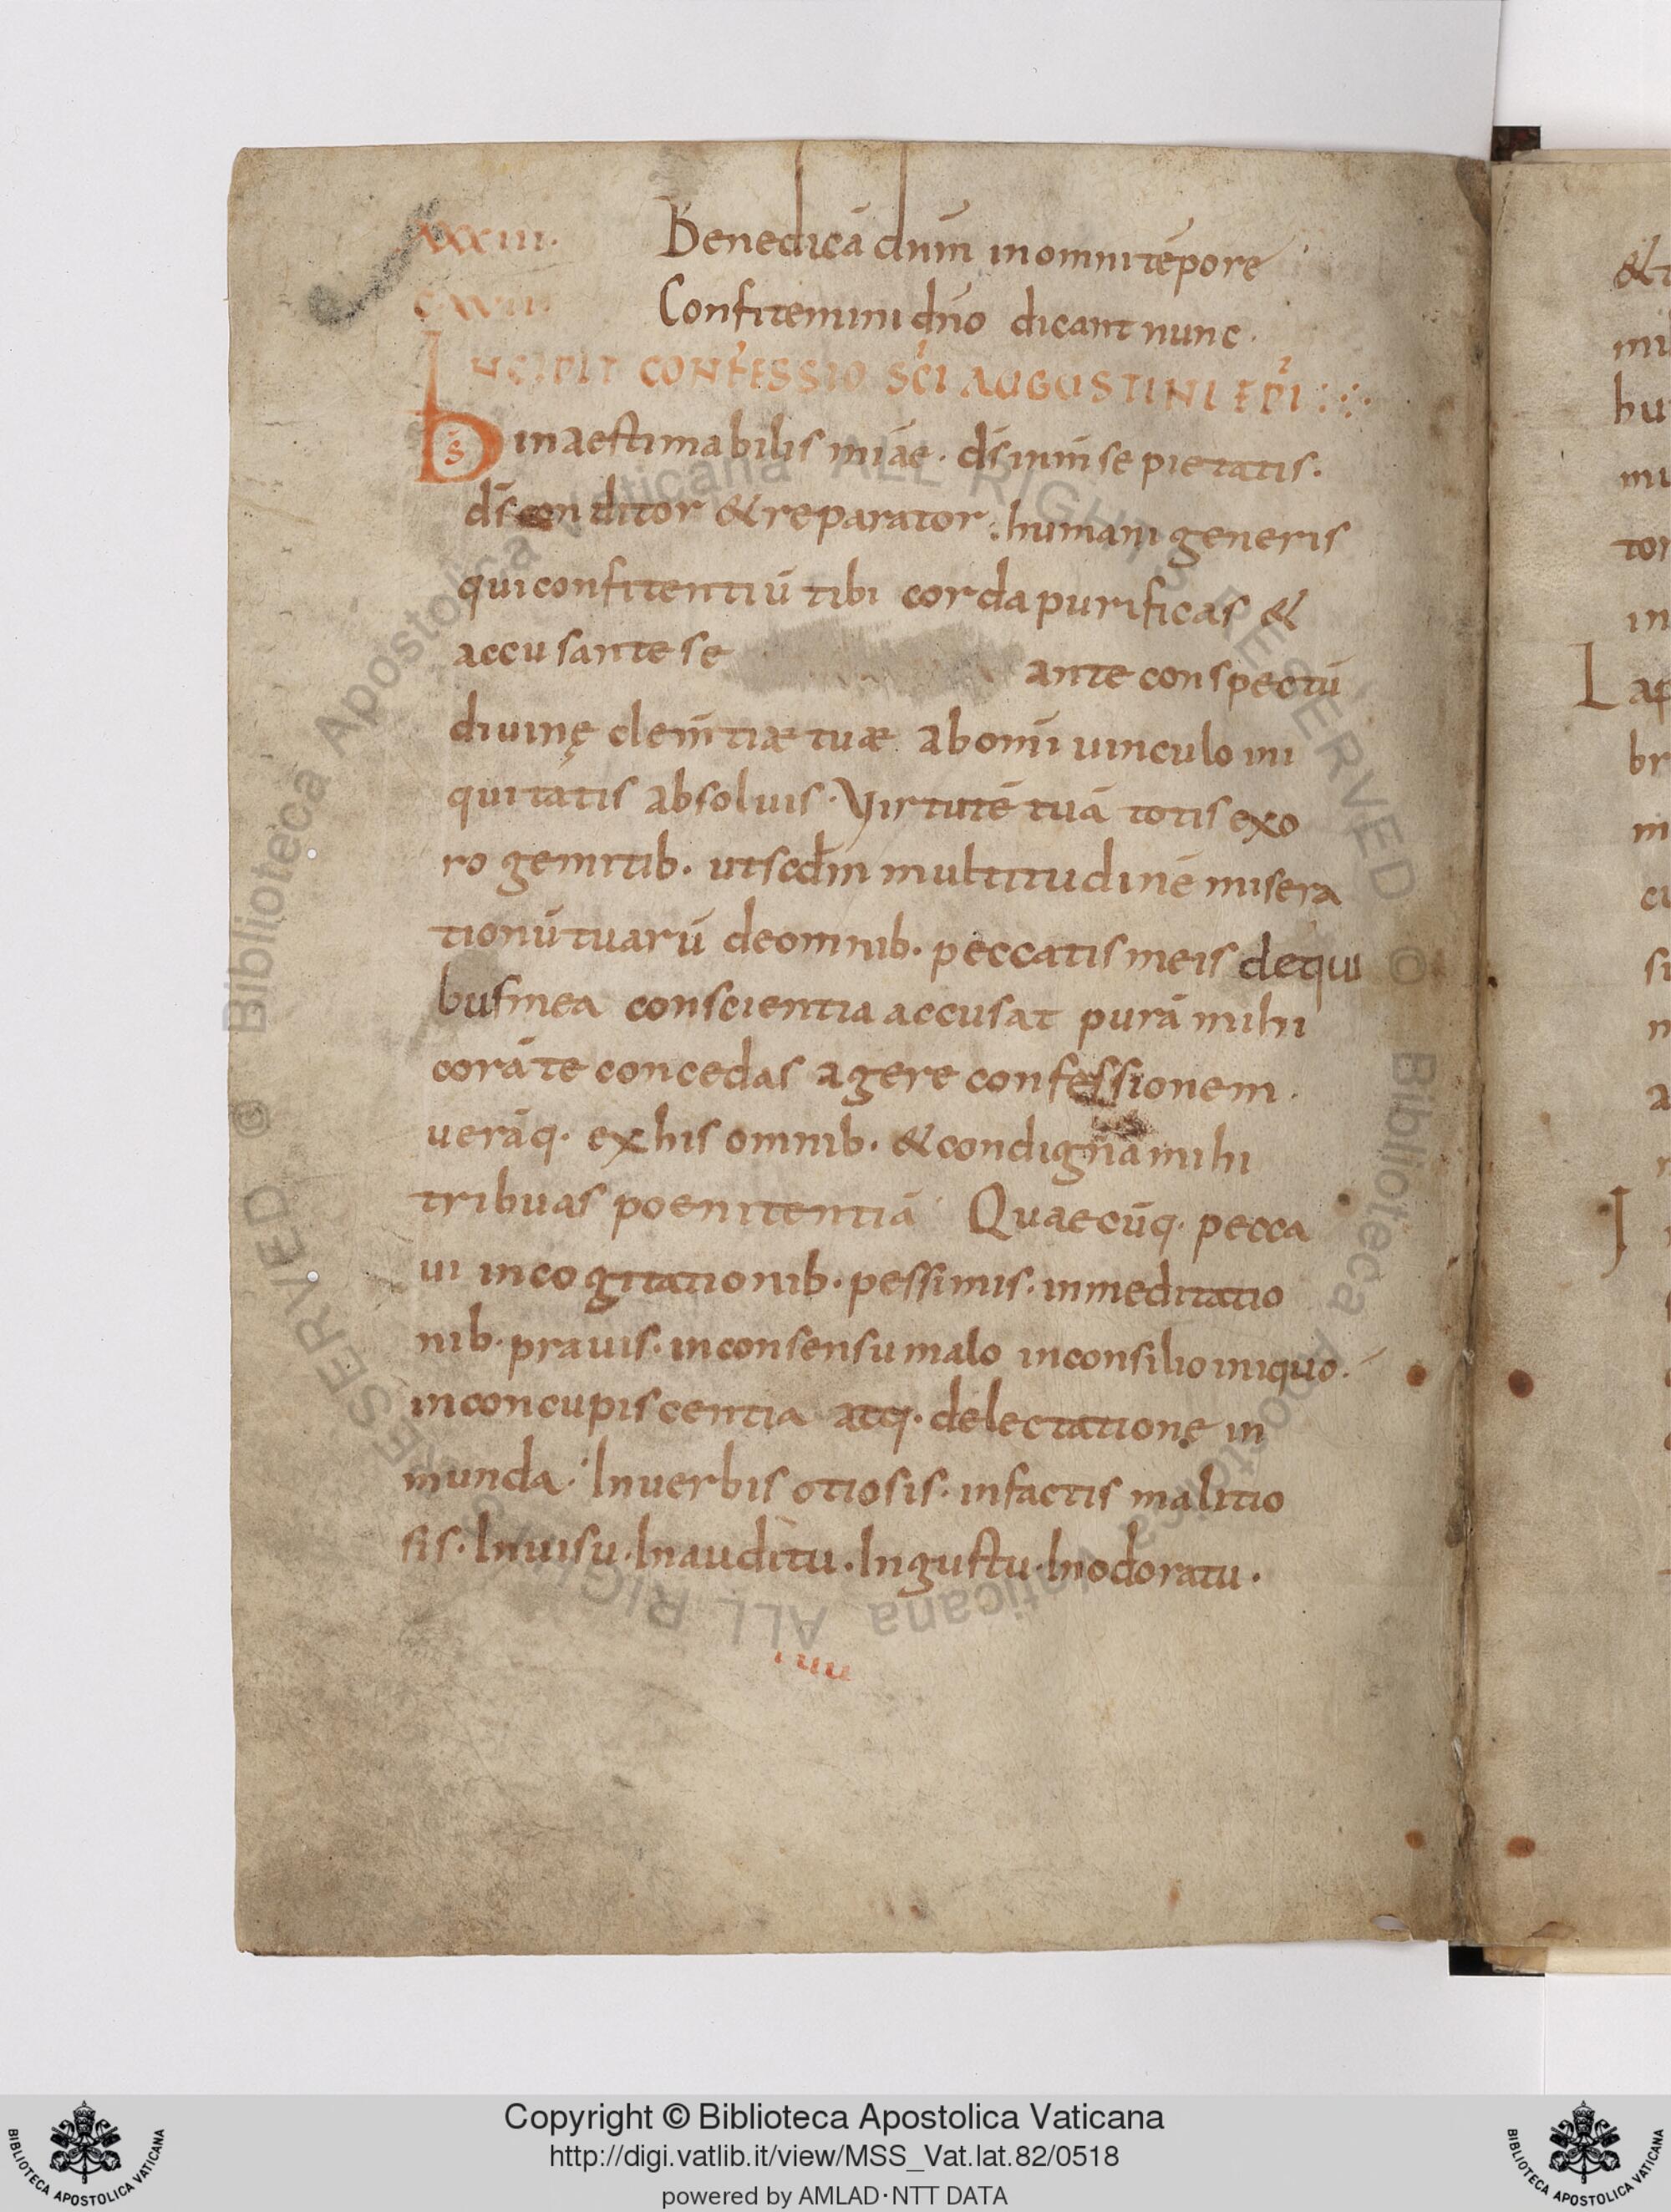 XXXIII. Benedicā dn̄m in omni tēpore
CXVII. Confitemini dn̄o dicant nunc.
INCIPIT CONFESSIO SC̄I AUGUSTINI EP̄I
Ds̄ inaestimabilis mīae. ds̄ inmense pietatis.
ds̄ conditor & reparator. humani generis
qui confitentiū tibi corda purificas &
accusante se ante conspectū
diuinę clem̄tiæ tuæ ab om̄i uinculo ini
quitatis absoluis. Virtutē tuā totis exo
ro gemitib. ut scd̄m multitudinē misera
tionū tuarū de omnib. peccatis meis de qui
bus mea conscientia accusat purā mihi
corā te concedas agere confessionem.
uerāq. ex his omnib. & condignā mihi
tribuas poenitentiā Quaecūq. pecca
ui in cogitationib. pessimis. in meditatio
nib. prauis. in consensu malo in consilio iniquo.
in concupiscentia atq. delectatione in
munda. In uerbis otiosis. in factis malitio
sis. In uisu. In auditu. In gustu. In odoratu.
&
mi
hu
mu
tor
in
L ap
br
Copyright © Biblioteca Apostolica Vaticana
http://digi.vatlib.it/view/MSS_Vat.lat.82/0518
powered by AMLAD·NTT DATA
BIBLIOTECA APOSTOLICA VATICANA
BIBLIOTECA APOSTOLICA VATICANA
© Biblioteca Apostolica Vaticana ALL RIGHTS RESERVED
© Biblioteca Apostolica Vaticana ALL RIGHTS RESERVED